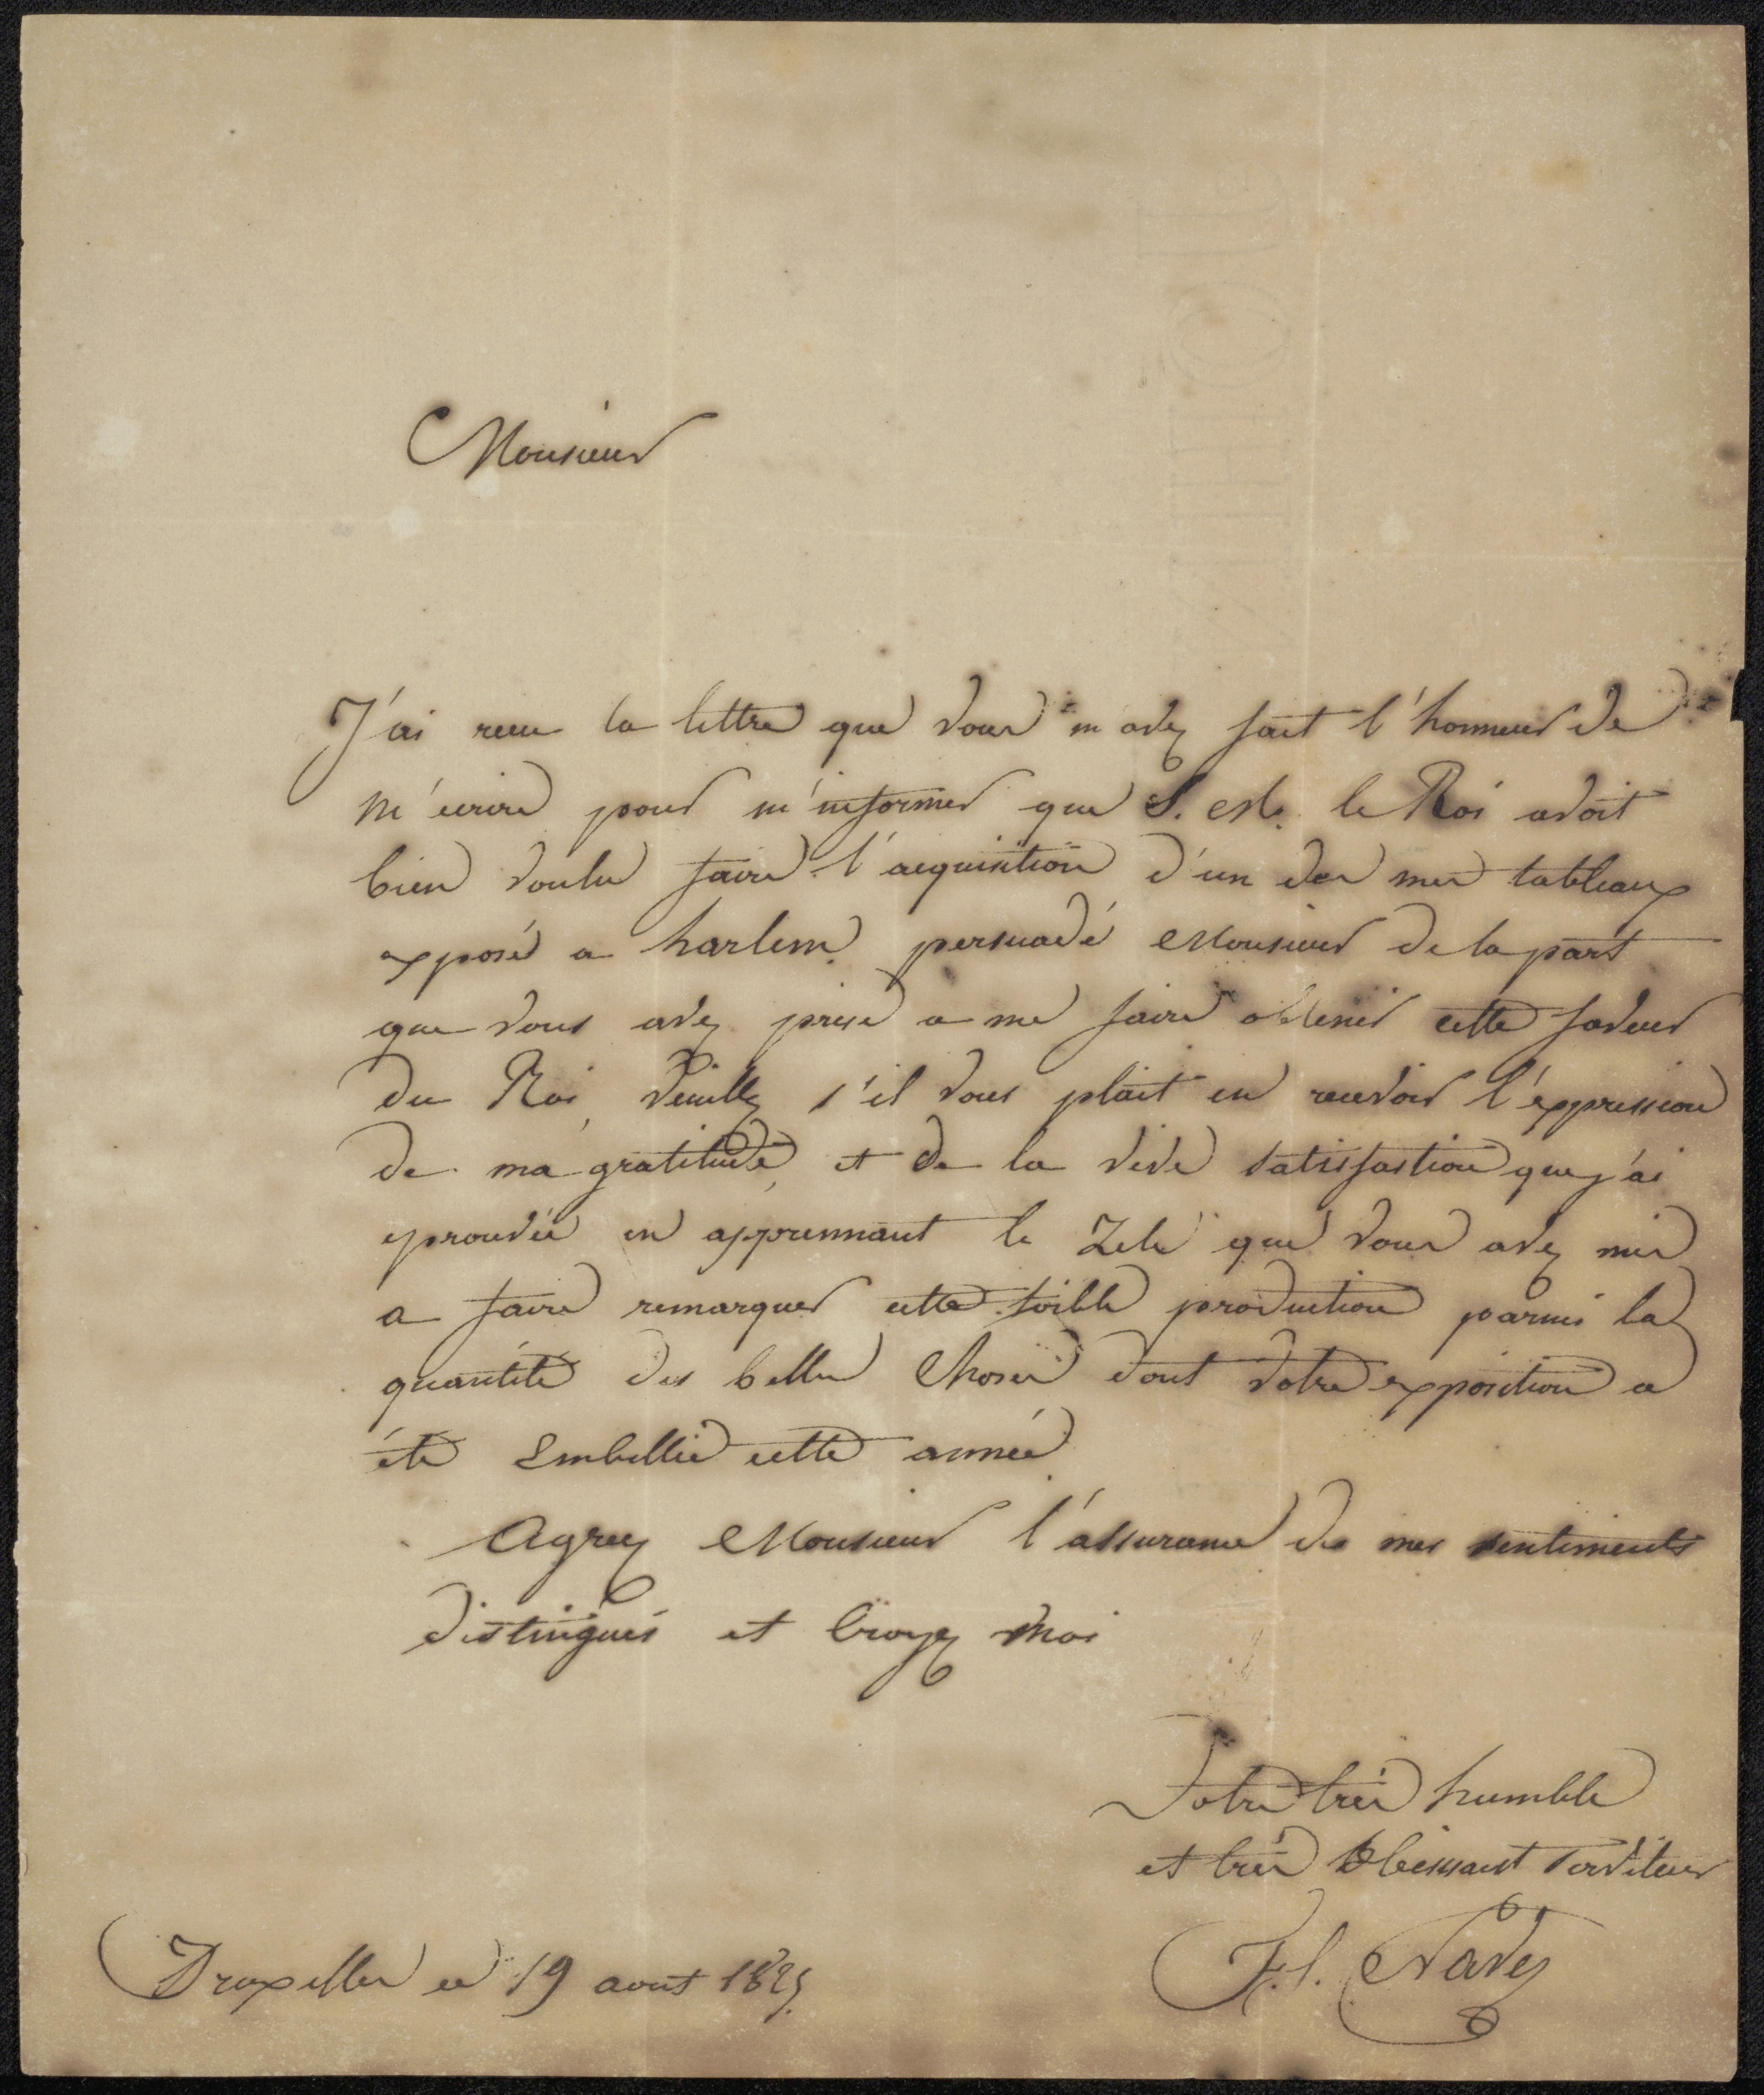 Monsieur
J'ai recu la lettre que vous m'avez fait l'honneur de
m'ecrire pour m'informer que S. M. le Roi avoit
bien voulu faire l'acquisition d'un des mes tableaux
exposés a harlem, persuadé Monsieur de la part
que vous avez prise a me faire obtenir cette faveur
du Roi, veuillez s'il vous plait en recevoir l'expression
de ma gratitude, et de la vive satisfaction que j'ai
eprouvée en apprennant le Zele que vous avez mis
a faire remarquer cette foible production parmi la
quantité des belles choses dont votre exposition a
été Embellie cette année
Agreez Monsieur l'assurance de mes sentiments
distingués et Croyez moi
Votre très humble
et très Obeissant Serviteur
F. J. Navez
Bruxelles ce 19 aout 1825